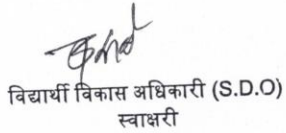 विद्यार्थी विकास अधिकारी (S.D.O)
स्वाक्षरी